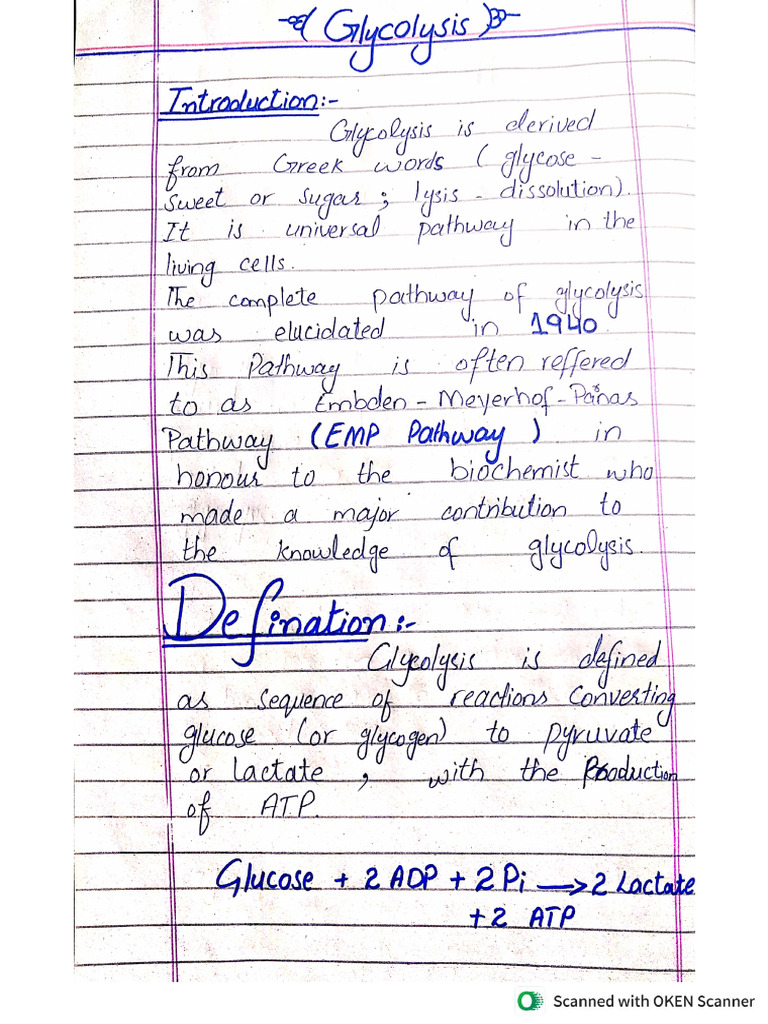 (Glycolysis)
Introduction:-
Glycolysis is derived
from Greek words (glycose -
sweet or sugar; lysis - dissolution).
It is universal pathway in the
living cells.
The complete pathway of glycolysis
was elucidated in 1940.
This Pathway is often reffered
to as Embden-Meyerhof-Parnas
Pathway (EMP Pathway) in
honour to the biochemist who
made a major contribution to
the knowledge of glycolysis.
Defination:-
Glycolysis is defined
as sequence of reactions converting
glucose (or glycogen) to pyruvate
or lactate, with the Production
of ATP.
Glucose + 2 ADP + 2 Pi → 2 Lactate
+ 2 ATP
Scanned with OKEN Scanner